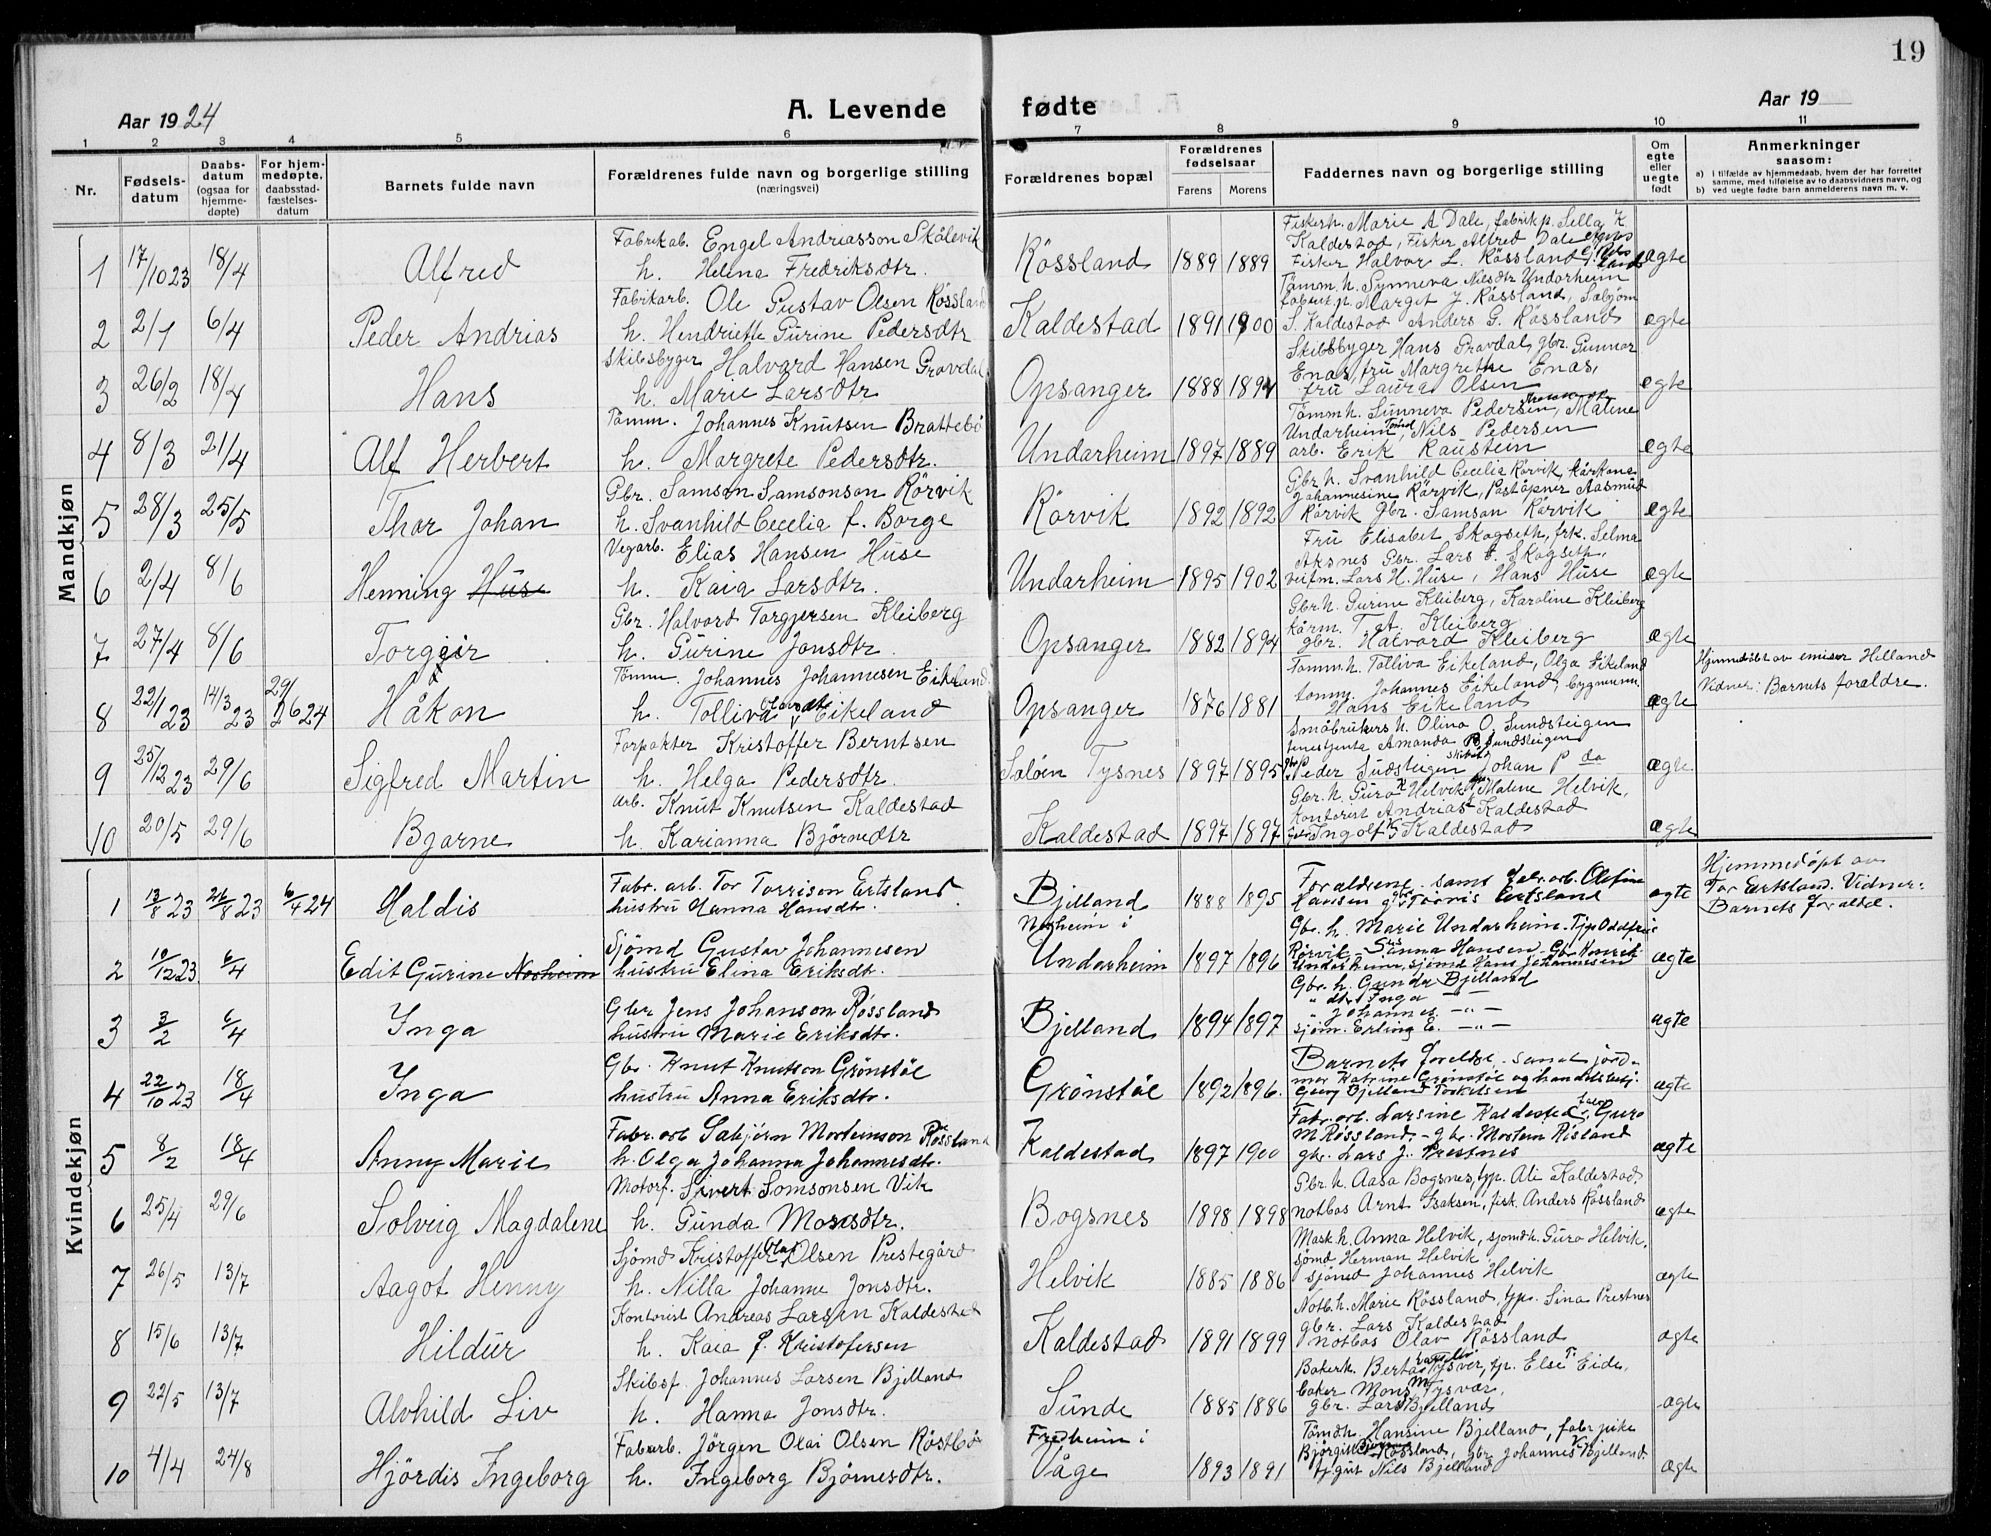 19
Aar 1924
A. Levende fødte
Aar 19
1 2 3 4 5 6 7 8 9 10 11
Nr.
Fødsels-datum
Daabs-datum (ogsaa for hjemme-døpte)
For hjem-medøpte. daabsstad-fæstelses-datum
Barnets fulde navn
Forældrenes fulde navn og borgerlige stilling (næringsvei)
Forældrenes bopæl
Forældrenes fødselsaar
Farens Morens
Faddernes navn og borgerlige stilling
Om egte eller uegte født
Anmerkninger saasom:
a) i tilfælde av hjemmedaab, hvem der har forrettet samme, med tilføielse av to daabsvidners navn, og
b) ved uegte fødte barn anmelderens navn m. v.
Mandkjøn
1 17/10 23 18/4 Alfred
Fabrikab. Engel Andriasson Skålevik
h. Helena Fredriksdtr.
Røssland 1889 1889
Fiskerh. Marie A Dale, fabrikp. Sella K
Kaldestad, Fisker Alfred Dale
Fisker Halvor L. Røssland
ægte
2 2/1 6/4 Peder Andrias
Fabrikarb. Ole Gustav Olsen Røssland
h. Hendriette Gurine Pedersdtr
Kaldestad 1891 1900
Tømm. h. Synneva Nilsdtr Undarheim
Margit J. Røssland, Sæbjørn
S. Kaldestad Anders G. Røssland
ægte
3 26/2 18/4 Hans
Skibsbyger Halvard Hansen Gravdal
h. Marie Larsdtr
Opsanger 1888 1894
Skibsbyger Hans Gravdal, gbr. Gunnar
Enæs, fru Margrethe Enæs,
fru Laura Olsen
ægte
4 8/3 21/4 Alf Herbert
Tømm. Johannes Knutsen Brattebø
h. Margrete Pedersdtr.
Undarheim 1897 1889
Tømmh. Sunneva Pedersen, Malene
Undarheim, Nils Pedersen
arb. Erik Raustein
ægte
5 28/3 25/5 Thor Johan
Gbr. Samson Samsonson Rørvik
h. Svanhild Cecelia f. Borge
Rørvik 1892 1892
Gbr. h. Svanhild Cecelia Rørvik, kårkona
Johannesine Rørvik, Poståpner Aasmud
Rørvik gbr. Samson Rørvik
ægte
6 2/4 8/6 Henning Huse
Vegarb. Elias Hansen Huse
h. Kaia Larsdtr.
Undarheim 1895 1902
Fru Elisabet Skogseth, frk. Selma
Aksnes Gbr. Lars E. Skogseth,
veifm. Lars H. Huse, Hans Huse
ægte
7 27/4 8/6 Torgeir
Gbr. Halvord Torgjersen Kleiberg
h. Gurine Jonsdtr.
Opsanger 1882 1894
Gbr. h. Gurine Kleiberg, Karoline Kleiberg
kårm. T. A. Kleiberg
gbr. Halvard Kleiberg
ægte
8 22/1 23 14/3 23 29/6 24 Håkon
Tømm. Johannes Johannesen Eikeland
h. Tolliva Olavdtr Eikeland
Opsanger 1876 1881
Tømm. h. Tolliva Eikeland, Olga Eikeland
tømm. Johannes Eikeland, bygmm.
Hans Eikeland
ægte
Hjemmedøbt av emisær Helland
Vidner: Barnets forældre.
9 25/12 23 29/6 Sigfred Martin
Forpakter Kristoffer Berntsen
h. Helga Pedersdtr.
Saløen Tysnes 1897 1895
Småbrukers h. Olina O. Sundsteigen
tenestjenta Amanda B. Sundsteigen
Peder Sudsteigen Johan P do
ægte
10 20/5 29/6 Bjarne
arb. Knut Knutsen Kaldestad
h. Karianna Bjørnedtr
Kaldestad 1897 1897
Gbr. h. Guro Helvik, Malene Helvik,
Kontorist Andrias Kaldestad
Ingolf Kaldestad
ægte
Kvindekjøn
1 13/8 23 26/8 23 6/4 24 Haldis
Fabr. arb. Tor Torrison Ertsland
hustru Hanna Hansdtr.
Bjelland 1888 1895
Forældrene. samt fabr. arb. Olefine
Hansen gbr Torris Ertsland
ægte
Hjemmedøpt av
Tor Ertsland. Vidner:
Barnets foreldre.
2 10/12 23. 6/4 Edit Gurine Nesheim
Sjømd Gustav Johannesen
hustru Elina Eriksdtr.
Nesheim i
Undarheim 1897 1896
Gbr. h. Marie Undarheim. Tjp Oddfrie
Rørvik. Hanna Hansen. Gbr Henrik
Undarheim, sjømd Hans Johannesen
ægte
3 3/2 6/4 Inga
Gbr Jens Johanson Røssland
hustru Marie Eriksdtr.
Bjelland 1894 1897
Gbr. h. Gunda Bjelland
" dtr Inga — " —
" Johannes — " —
sjøm. Erling E. — " —
ægte
4 22/10 23 18/4 Inga
Gbr. Knut Knutson Grønstøl
hustru Anna Eriksdtr.
Grønstøl 1892 1896.
Barnets foreldre. samt jord-
mor Katrine Grønstøl og handelsbetj.
Georg Bjelland Torkelsen
ægte
5 8/2 18/4 Anny Marie
Fabr. arb Sabjørn Mortenson Røssland
h. Olga Johanna Johannesdtr.
Kaldestad 1897 1900
Fabr. arb. Larsine Kaldestad, Guro
M Røssland. - gbr. Mortem Risland
gbr. Lars J. Prestnes
ægte
6 25/4 29/6 Solveig Magdalene
Motorf. Sivert Somsonsen Vik
h. Gunda Monsdtr.
Bogsnes 1898 1898
Gbr. h. Aasa Bogsnes, tjp. Ali Kaldestad.
notbas Arnt Isaksen, fisk. Anders Røssland
ægte
7 26/5 13/7 Aagot Henny
Sjømd Kristoffer Olai Olsen Prestegård
h. Nilla Johanne Jonsdtr.
Helvik 1885 1886
Mask h. Anna Helvik, sjomdh. Guro Helvik,
sjømd Herman Helvik
sjømd Johannes Helvik
ægte
8 15/6 13/7 Hildur
Kontorist Andreas Larsen Kaldestad
h. Kaia f. Kristofersen
Kaldestad 1891 1899
Notb. h. Marie Røssland, tjp. Sina Prestnes
gbr. Lars Kaldestad
notbas Olav Røssland
ægte
9 22/5 13/7 Alvhild Liv
Skibsf. Johannes Larsen Bjelland
h. Hanna Jonsdtr.
Sunde 1885 1886
Bakerh. Berta Tysver, tjp. Else T. Eide,
baker Mons M Tysvær,
gbr. Lars Bjelland
ægte
10 4/4 24/8 Hjördis Ingeborg
Fabarb. Jørgen Olai Olsen Røstbø
h. Ingeborg Bjørnesdtr.
Fredheim i
Våge 1893 1891
Tømdh. Hansine Bjelland, fabr pike
Bjørgit Røssland, gbr Johannes K Bjelland.
tjgut Nils Bjelland
ægte